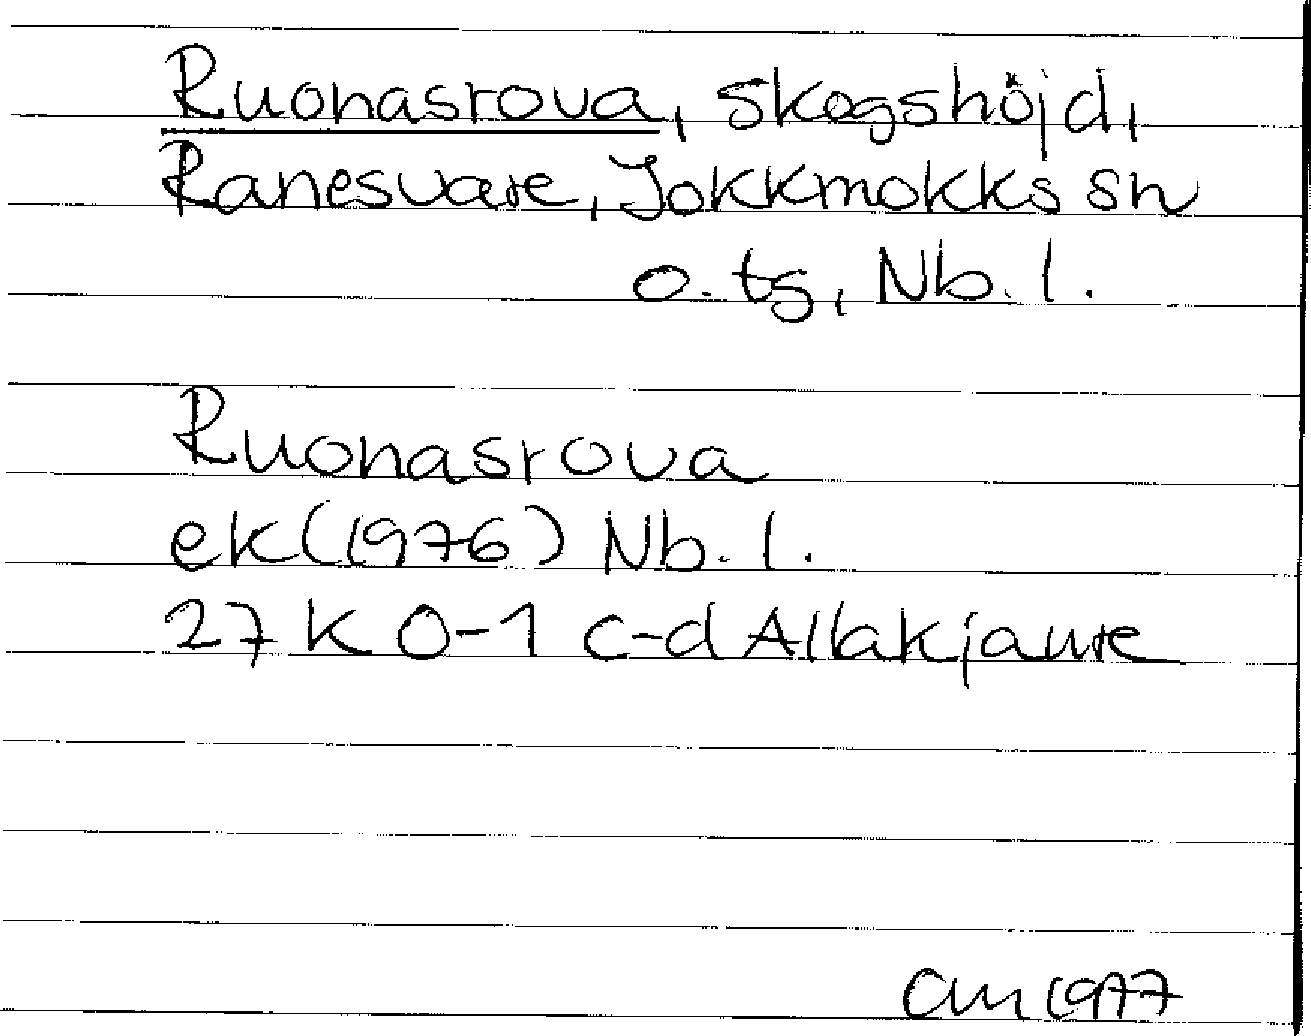 Ruonasrova, skogshöjd,
Ranesvare, Jokkmokks sn
o. tg, Nb. l.
Ruonasrova
ek (1976) Nb. l.
27 K 0-1 c-d Allakjaure
1977